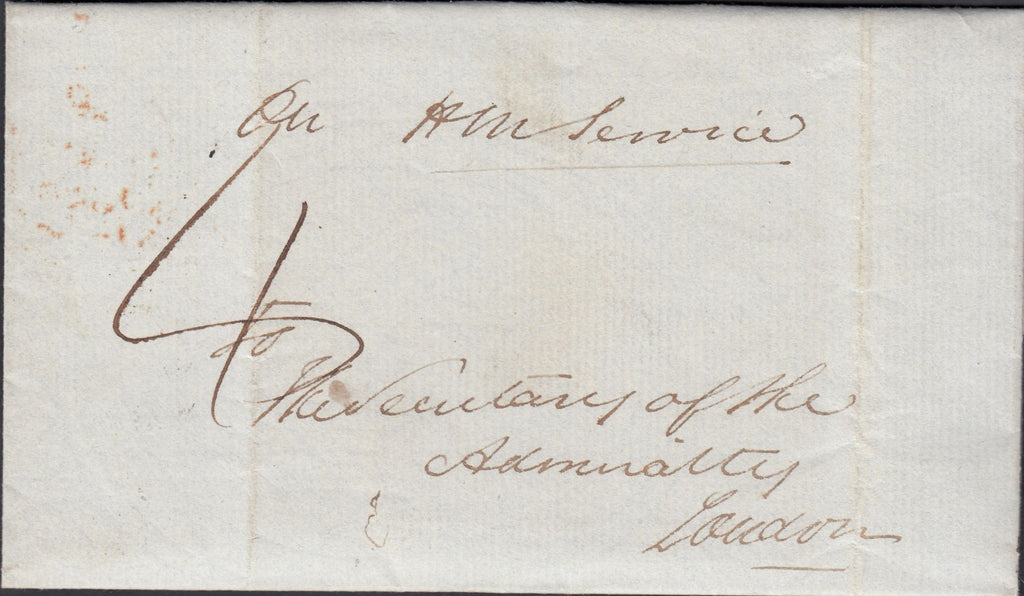 On HM Service
4
To
The Secretary of the
Admiralty
London